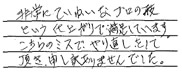 非常にていねいなプロの技
という仕上がりで満足しています。
こちらのミスでやり直しをして
頂き申し訳ありませんでした。